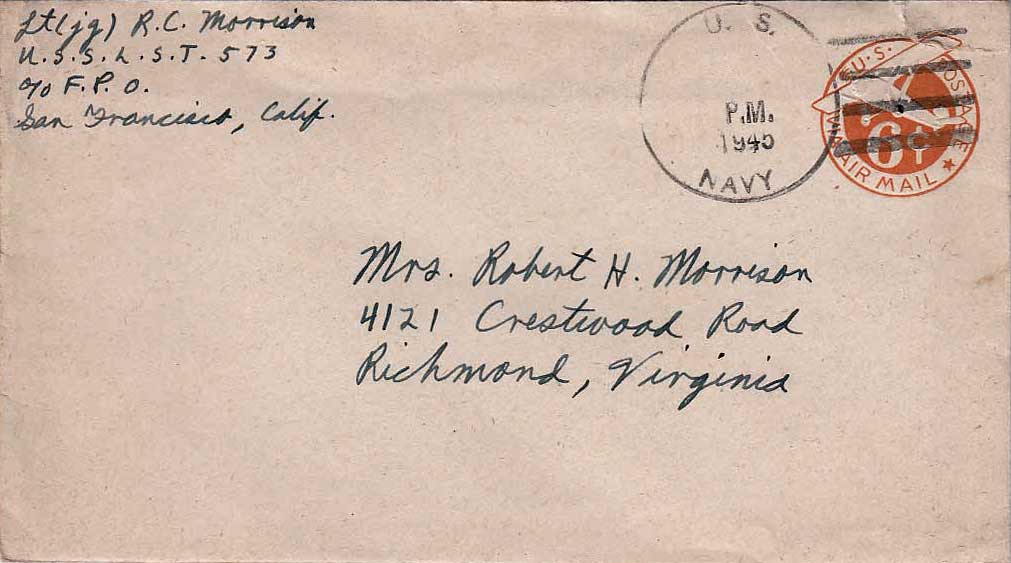 Lt(jg) R.C. Morrison
U.S.S. L.S.T. 573
c/o F.P.O.
San Francisco, Calif.
U. S.
P.M.
1945
NAVY
U.S. POSTAGE
6¢
AIR MAIL
Mrs. Robert H. Morrison
4121 Crestwood Road
Richmond, Virginia